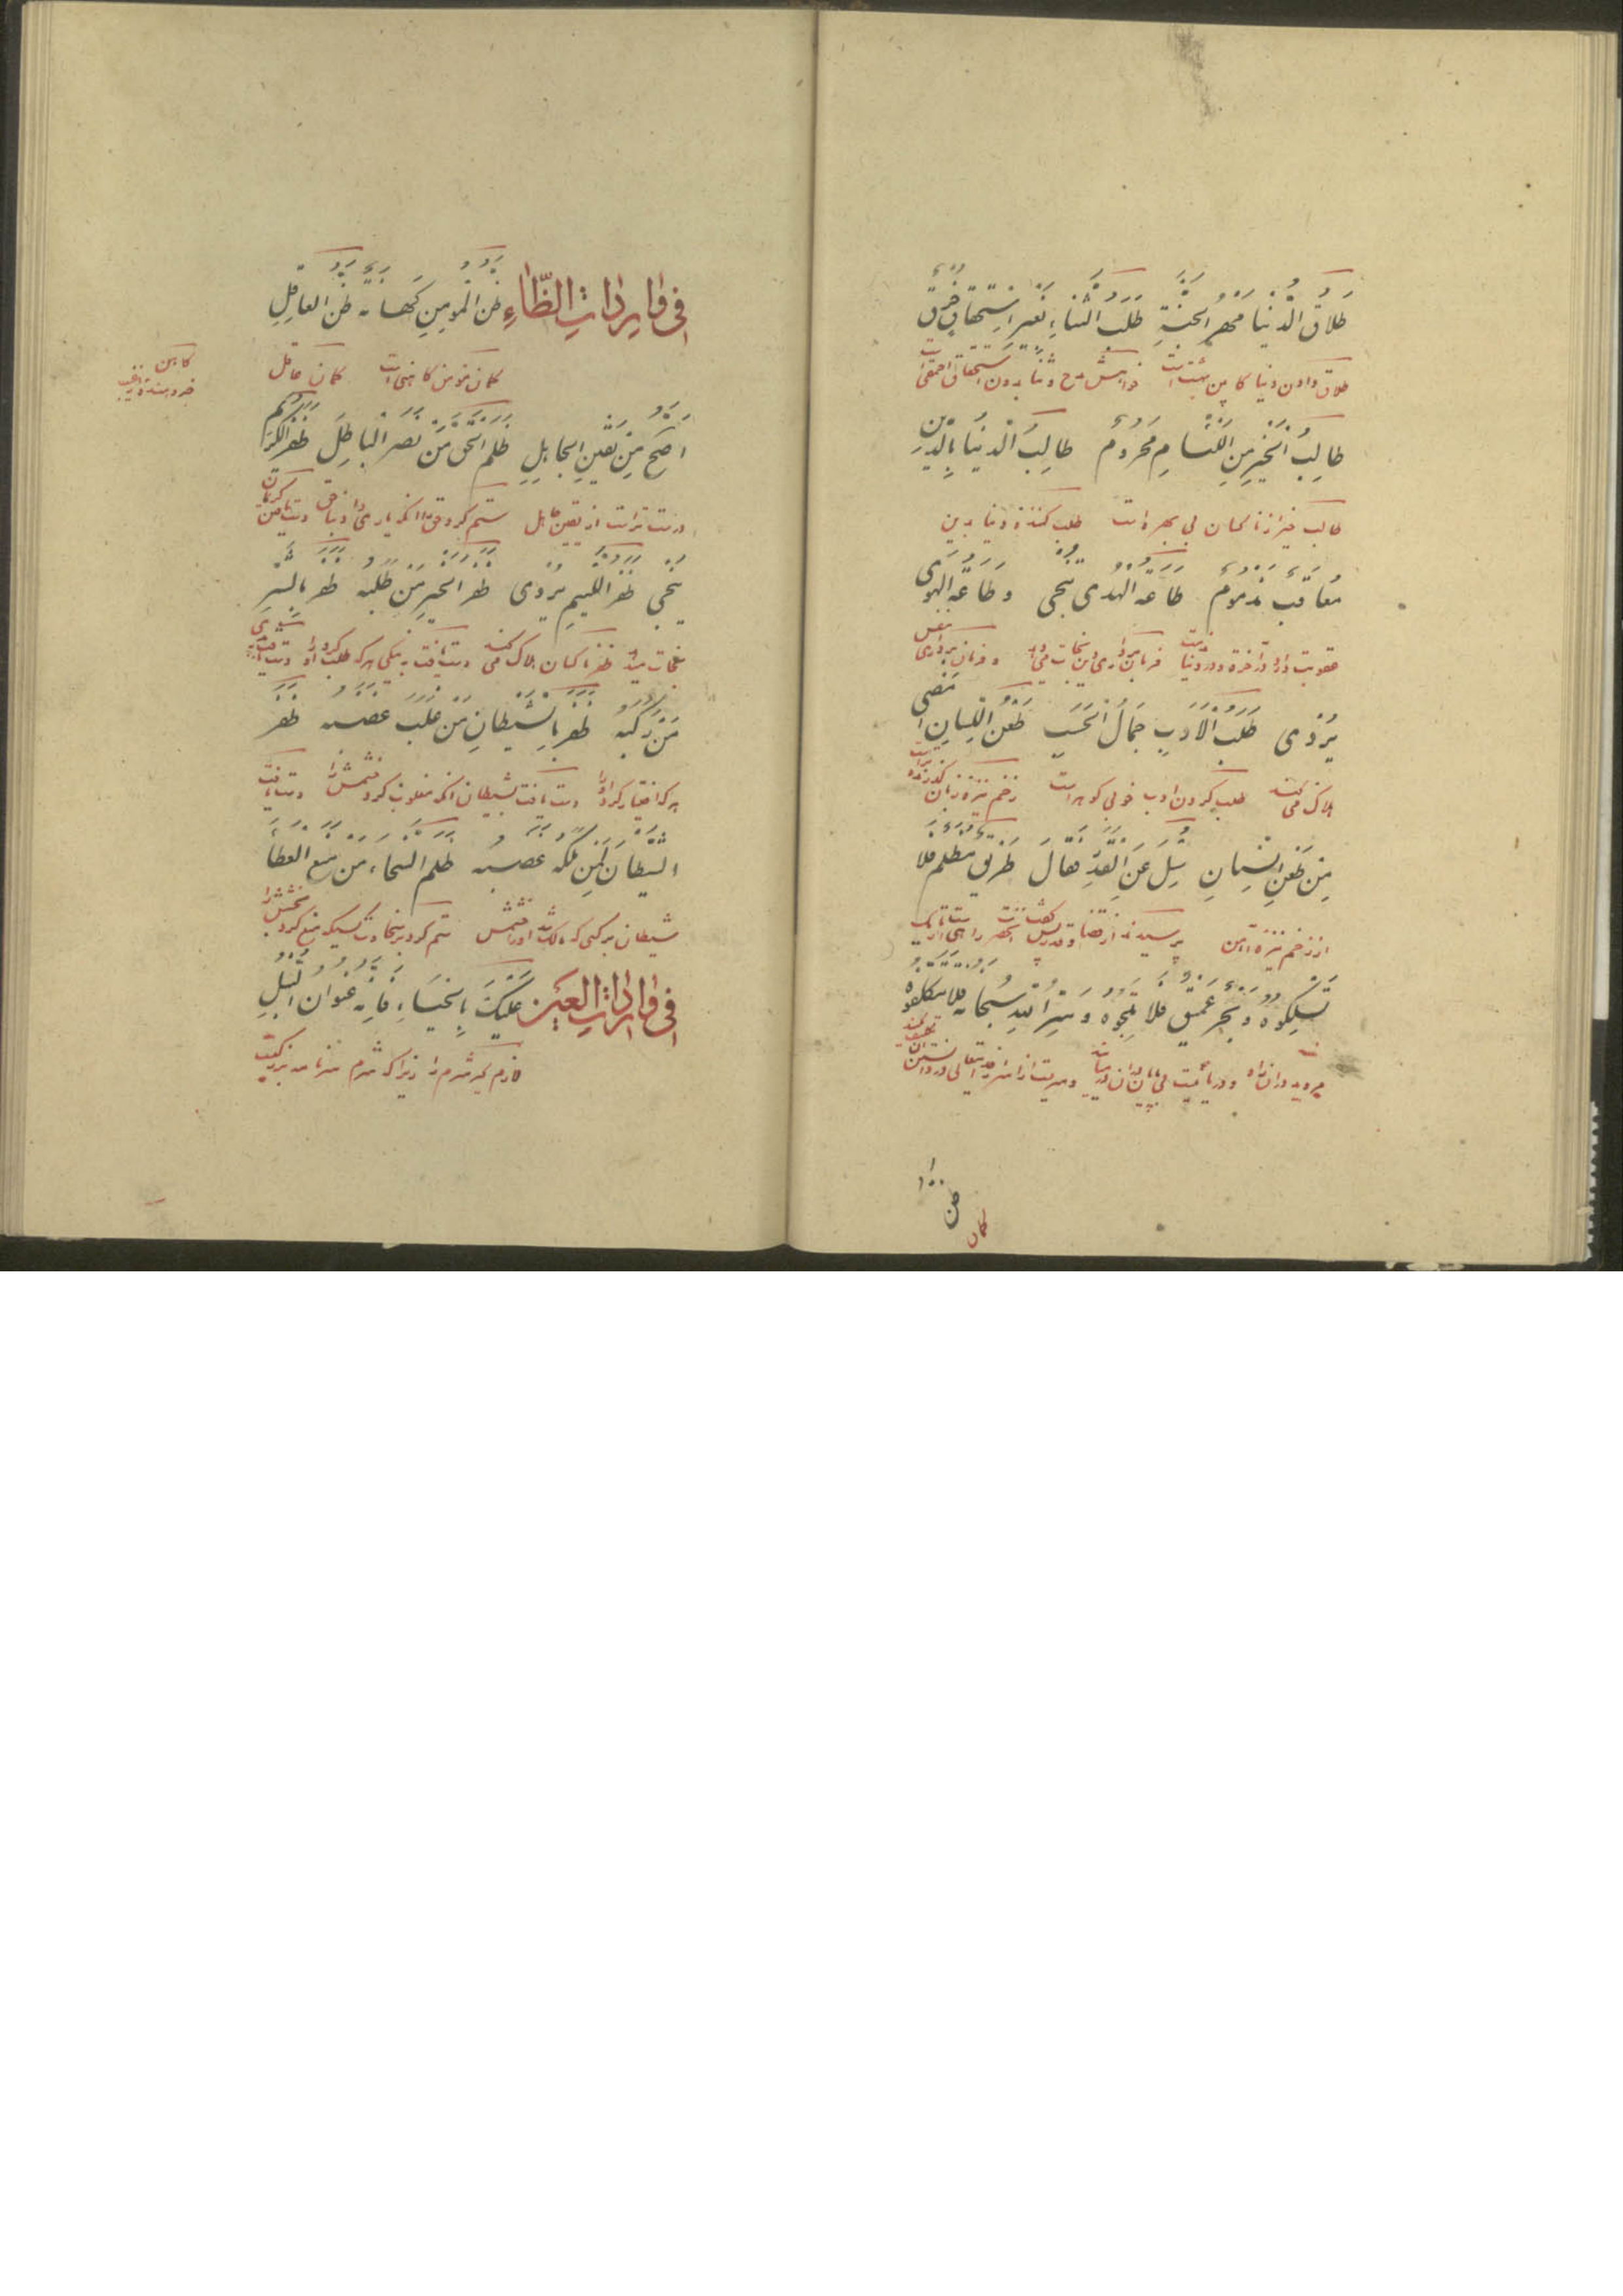 طَلَاقُ الدُّنْيَا مَهْرُ الْجَنَّةِ طَلَبُ الثَّنَاءِ بِغَيْرِ اسْتِحْقَاقٍ خُرْقٌ
طلاق دادن دنیا کابین بهشت است خواهش مدح و ثنا بدون استحقاق احمقی است
طَالِبُ الْخَيْرِ مِنَ اللِّئَامِ مَحْرُومٌ طَالِبُ الدُّنْيَا بِالدِّينِ
طالب خیر از ناکسان بی بهره است طلب کننده دنیا بدین
مُعَاقَبٌ مَذْمُومٌ طَاعَةُ الْهُدَى تُنْجِي وَطَاعَةُ الْهَوَى
عقوبت دارد در آخرة و در دنیا فرمان برداری دین نجات می دهد و فرمان برداری نفس
يُرْدِي طَلَبُ الْأَدَبِ جَمَالُ الْحَسَبِ طَعْنُ اللِّسَانِ أَمْضَى
هلاک می کند طلب کردن ادب خوبی کوهر است زخم نیزه زبان گذرنده
مِنْ طَعْنِ السِّنَانِ سُئِلَ عَنِ الْقَدَرِ فَقَالَ طَرِيقٌ مُظْلِمٌ فَلَا
از زخم نیزه آهن پرسیدند از قضا و قدر پس گفت آنحضرت راهی است تاریک
تَسْلُكُوهُ وَبَحْرٌ عَمِيقٌ فَلَا تَلِجُوهُ وَسِرُّ اللهِ سُبْحَانَهُ فَلَا تَتَكَلَّفُوهُ
مروید در ان راه و دریائیست
۱۰۰
ظن
کمان
فِي وَارِدَاتِ الظَّاءِ ظَنُّ الْمُؤْمِنِ كَهَانَةٌ ظَنُّ الْعَاقِلِ
کمان مؤمن کاهنی است کمان عاقل
کاهن
خبر دهنده از غیب
أَصَحُّ مِنْ يَقِينِ الْجَاهِلِ ظَلَمَ الْحَقَّ مَنْ نَصَرَ الْبَاطِلَ ظَفَرُ الْكِرَامِ
درست تر است از یقین جاهل ستم کرد حق را انکه یاری داد باطل
يُنْجِي ظَفَرُ اللَّئِيمِ يُرْدِي ظَفِرَ بِالْخَيْرِ مَنْ طَلَبَهُ ظَفِرَ بِالشَّرِّ
نجات میدهد ظفر ناکسان هلاک می کند دست یافت به نیکی هر که طلب کرد او را دست یافت
مَنْ رَكِبَهُ ظَفِرَ بِالشَّيْطَانِ مَنْ غَلَبَ غَضَبَهُ ظَفِرَ
هر که اختیار کرد او را دست یافت بشیطان انکه مغلوب کرد خشمش را دست یافت
الشَّيْطَانُ بِمَنْ مَلَكَهُ غَضَبُهُ ظَلَمَ السَّخَاءَ مَنْ مَنَعَ الْعَطَاءَ
شیطان بر کسی که مالک شد او را خشمش ستم کرد بر سخاوت کسیکه منع کرد بخشش را
فِي وَارِدَاتِ الْعَيْنِ عَلَيْكَ بِالْحَيَاءِ فَإِنَّهُ عُنْوَانُ النُّبْلِ
لازم گیر شرم را زیرا که شرم سرنامه بزرگیست